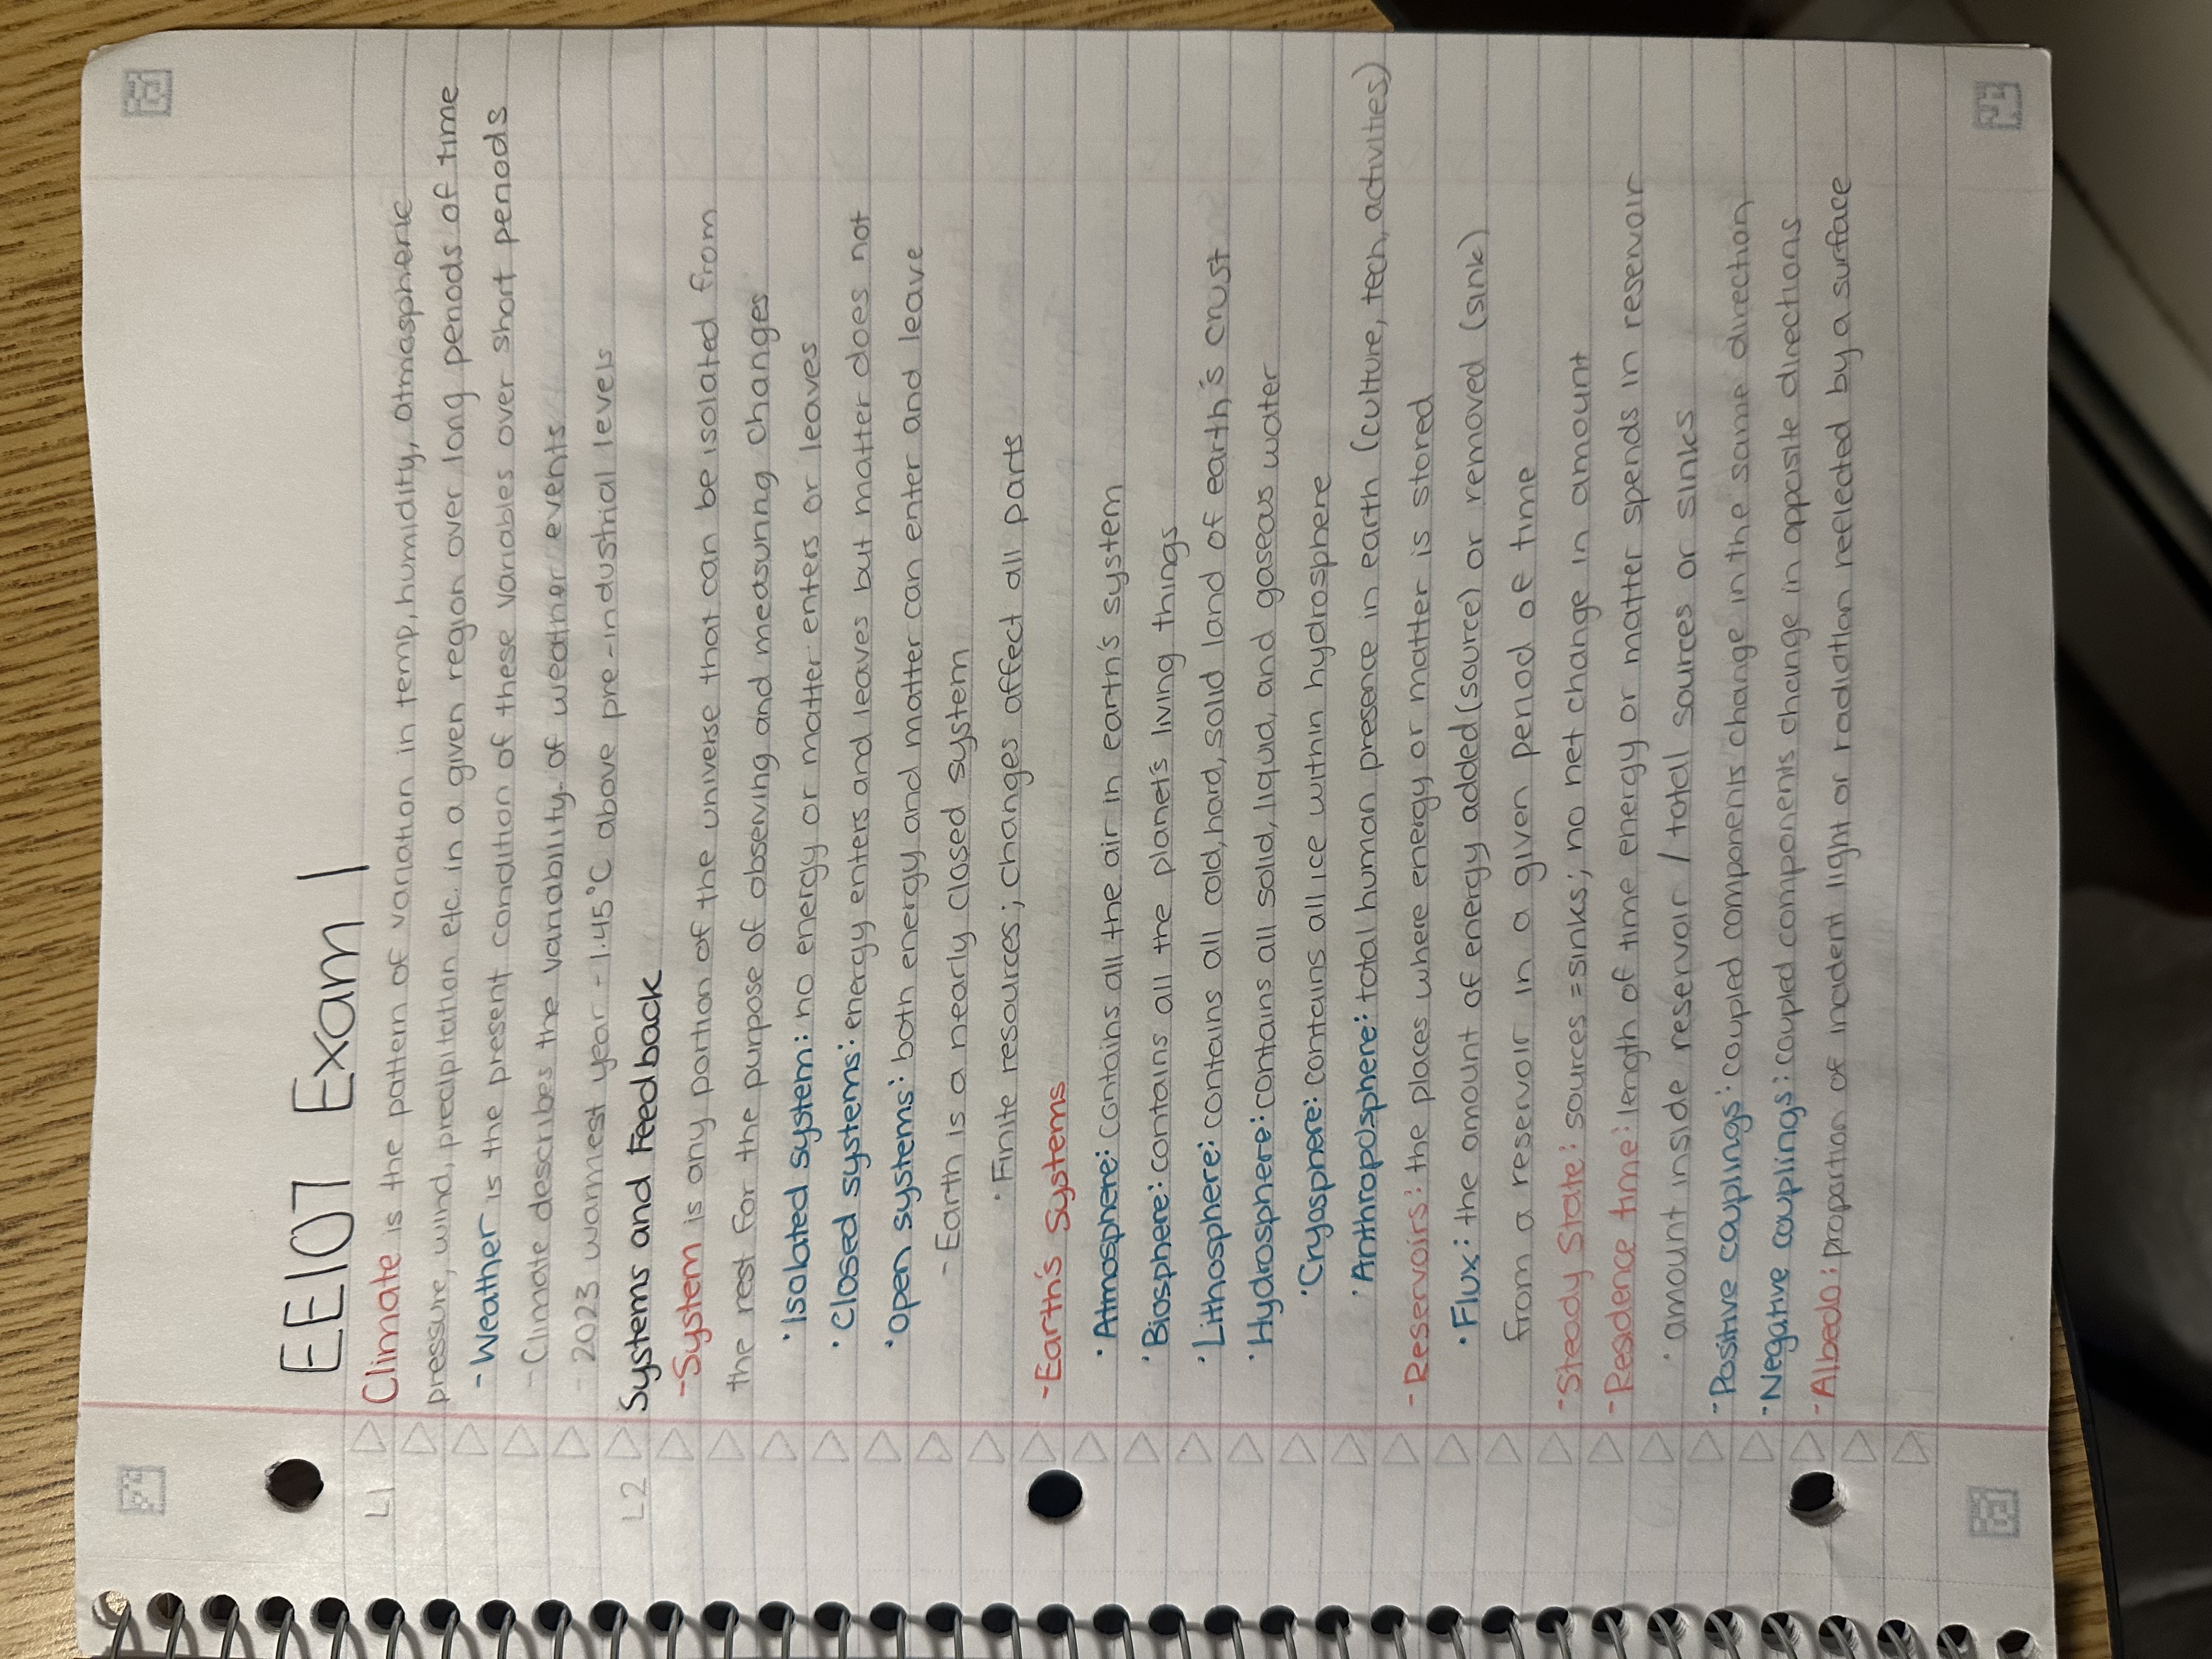 EE107 Exam 1
L1 Climate is the pattern of variation in temp, humidity, atmospheric
pressure, wind, precipitation etc. in a given region over long periods of time
- Weather is the present condition of these variables over short periods
- Climate describes the variability of weather events
- 2023 warmest year - 1.45°C above pre-industrial levels
L2 Systems and Feedback
- System is any portion of the universe that can be isolated from
the rest for the purpose of observing and measuring changes
· Isolated system: no energy or matter enters or leaves
· Closed systems: energy enters and leaves but matter does not
· Open systems: both energy and matter can enter and leave
- Earth is a nearly closed system
· Finite resources; changes affect all parts
- Earth's Systems
· Atmosphere: contains all the air in earth's system
· Biosphere: contains all the planet's living things
· Lithosphere: contains all cold, hard, solid land of earth's crust
· Hydrosphere: contains all solid, liquid, and gaseous water
· Cryosphere: contains all ice within hydrosphere
· Anthroposphere: total human presence in earth (culture, tech, activities)
- Reservoirs: the places where energy or matter is stored
· Flux: the amount of energy added (source) or removed (sink)
from a reservoir in a given period of time
- Steady State: sources = sinks; no net change in amount
- Residence time: length of time energy or matter spends in reservoir
· amount inside reservoir / total sources or sinks
- Positive couplings: coupled components change in the same direction
- Negative couplings: coupled components change in opposite directions
- Albedo: proportion of incident light or radiation reflected by a surface